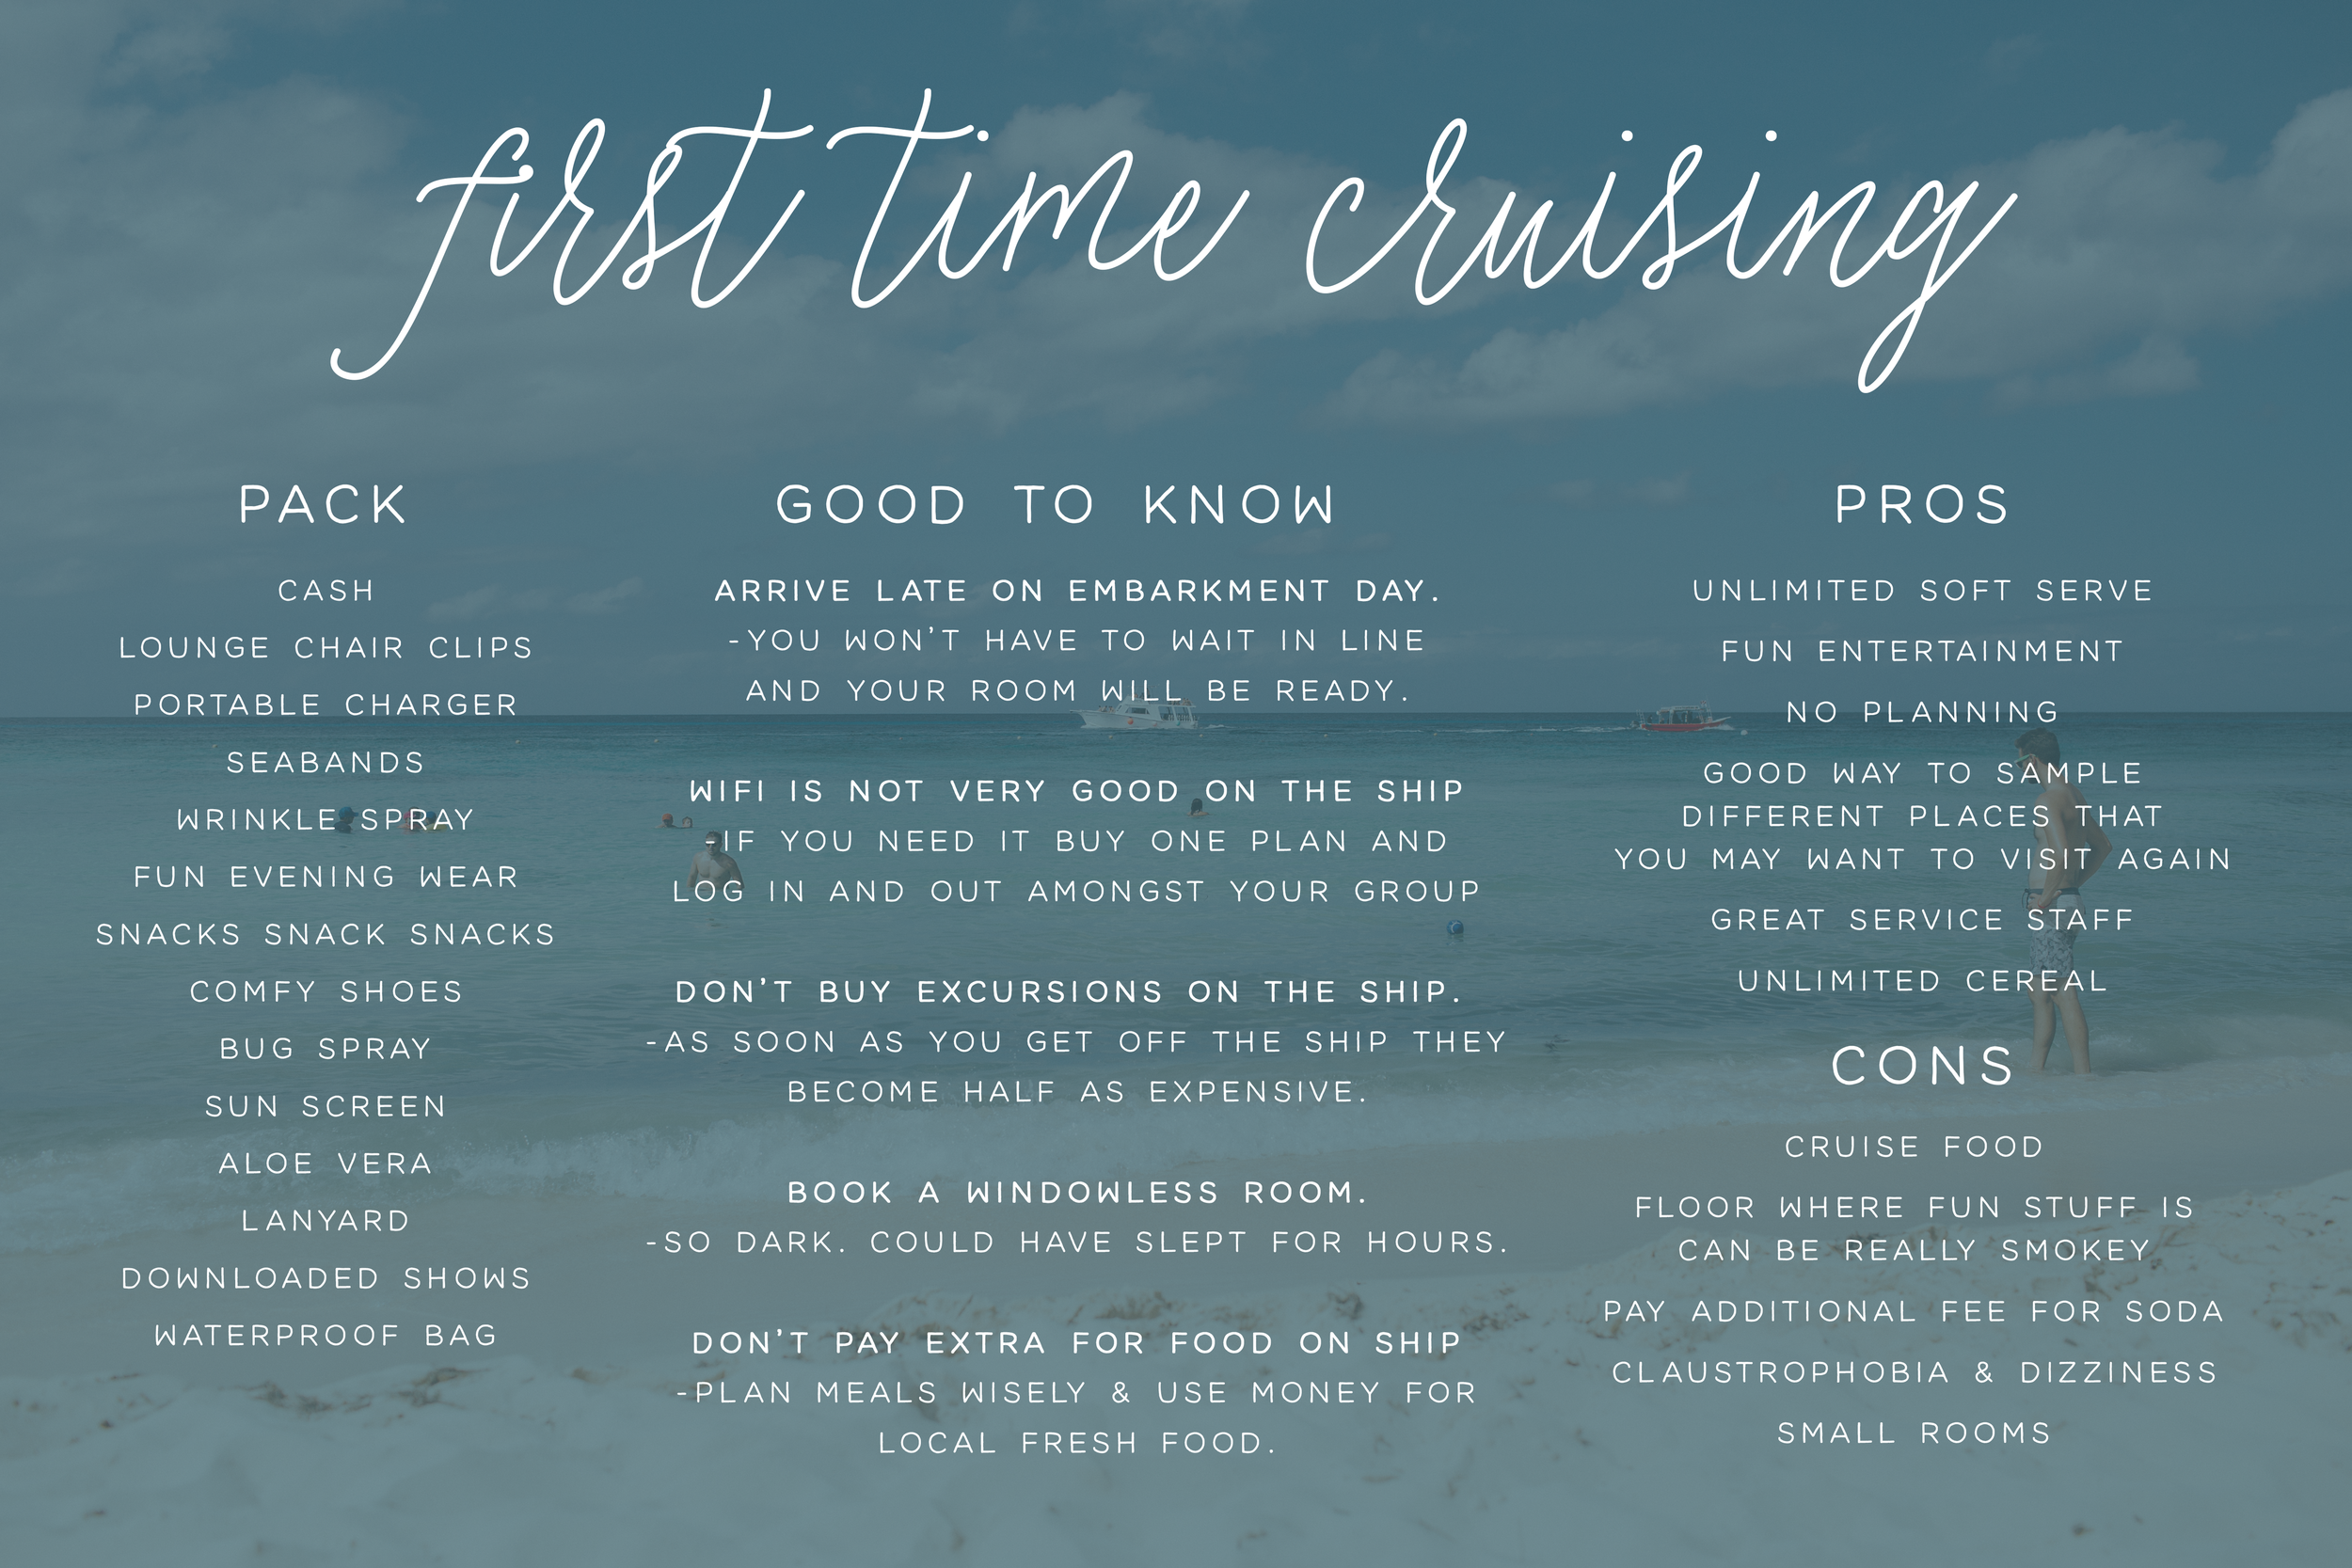 first time cruising
PACK
CASH
LOUNGE CHAIR CLIPS
PORTABLE CHARGER
SEABANDS
WRINKLE SPRAY
FUN EVENING WEAR
SNACKS SNACK SNACKS
COMFY SHOES
BUG SPRAY
SUN SCREEN
ALOE VERA
LANYARD
DOWNLOADED SHOWS
WATERPROOF BAG
GOOD TO KNOW
ARRIVE LATE ON EMBARKMENT DAY.
-YOU WON'T HAVE TO WAIT IN LINE
AND YOUR ROOM WILL BE READY.
WIFI IS NOT VERY GOOD ON THE SHIP
-IF YOU NEED IT BUY ONE PLAN AND
LOG IN AND OUT AMONGST YOUR GROUP
DON'T BUY EXCURSIONS ON THE SHIP.
-AS SOON AS YOU GET OFF THE SHIP THEY
BECOME HALF AS EXPENSIVE.
BOOK A WINDOWLESS ROOM.
-SO DARK. COULD HAVE SLEPT FOR HOURS.
DON'T PAY EXTRA FOR FOOD ON SHIP
-PLAN MEALS WISELY & USE MONEY FOR
LOCAL FRESH FOOD.
PROS
UNLIMITED SOFT SERVE
FUN ENTERTAINMENT
NO PLANNING
GOOD WAY TO SAMPLE
DIFFERENT PLACES THAT
YOU MAY WANT TO VISIT AGAIN
GREAT SERVICE STAFF
UNLIMITED CEREAL
CONS
CRUISE FOOD
FLOOR WHERE FUN STUFF IS
CAN BE REALLY SMOKEY
PAY ADDITIONAL FEE FOR SODA
CLAUSTROPHOBIA & DIZZINESS
SMALL ROOMS